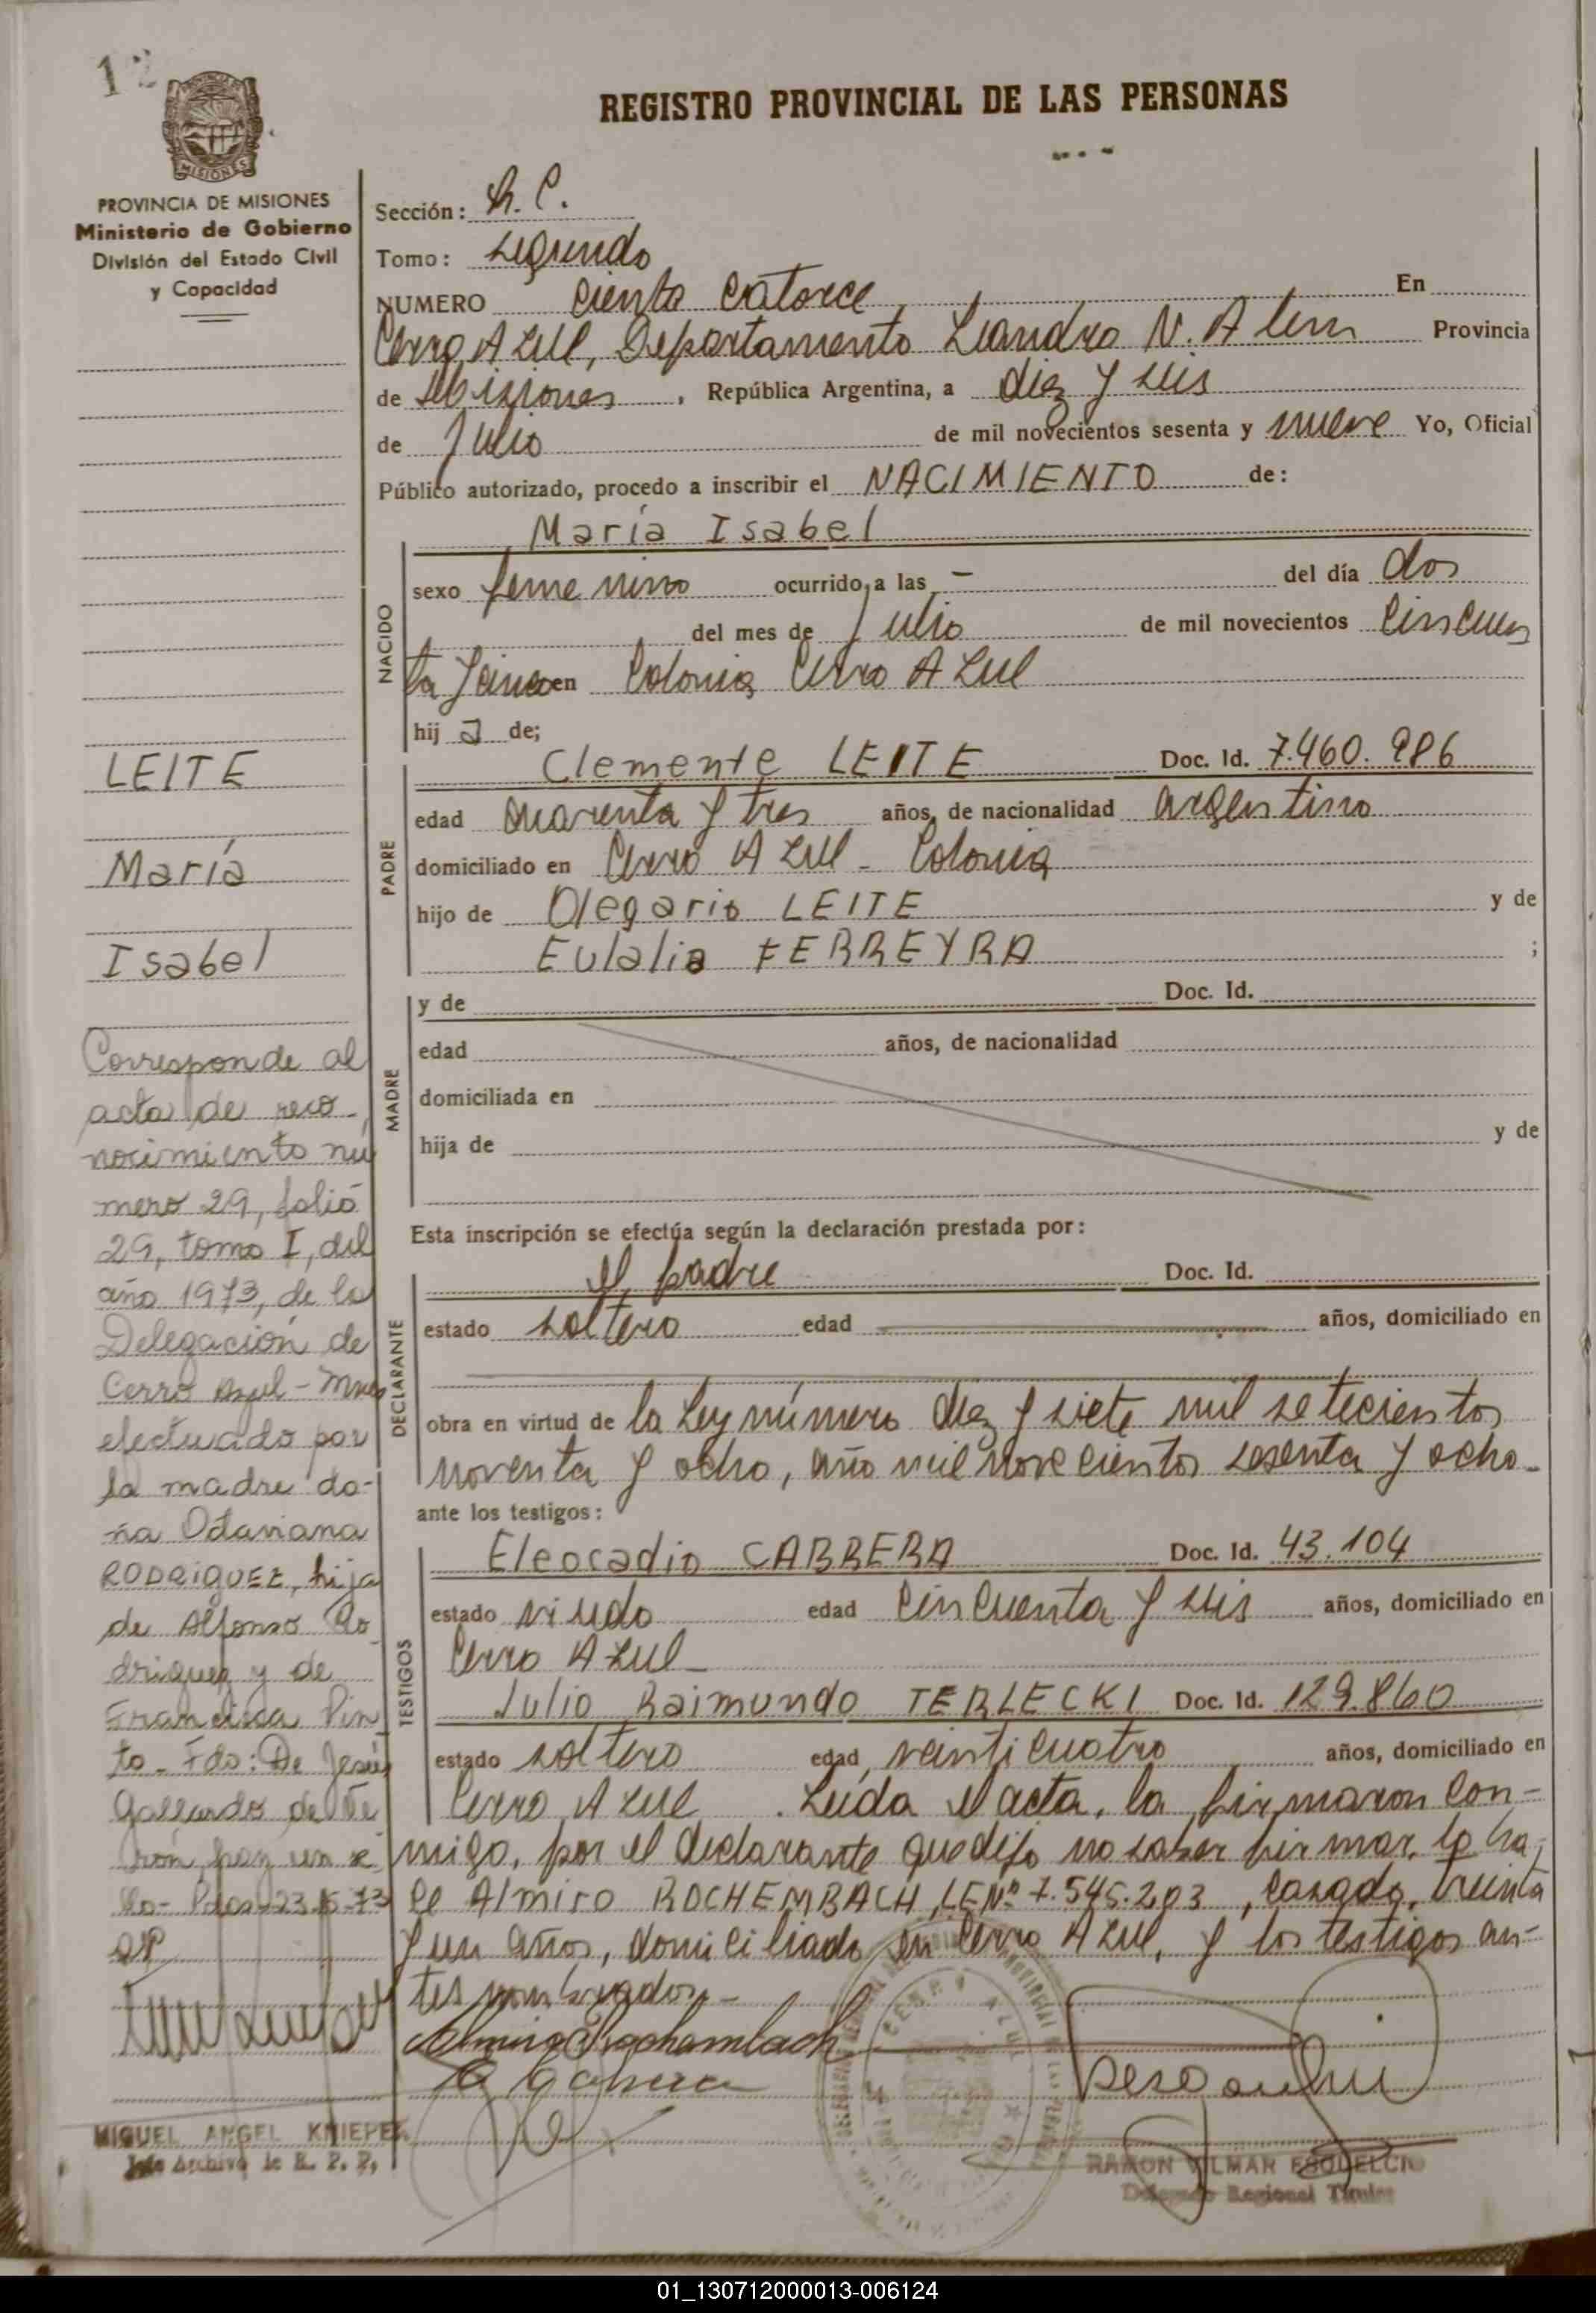 12
REGISTRO PROVINCIAL DE LAS PERSONAS
MISIONES
PROVINCIA DE MISIONES
Ministerio de Gobierno
División del Estado Civil
y Capacidad
Sección: R. C.
Tomo: Segundo
NUMERO Ciento Catorce, En
Cerro Azul, Departamento Leandro N. Alem Provincia
de Misiones, República Argentina, a diez y seis
de Julio de mil novecientos sesenta y nueve Yo, Oficial
Público autorizado, procedo a inscribir el NACIMIENTO de:
María Isabel
NACIDO
sexo femenino ocurrido a las - del día dos
del mes de Julio de mil novecientos Cincuen
ta y cinco en Colonia Cerro Azul
hij a de;
PADRE
Clemente LEITE Doc. Id. 7.460.986
edad cuarenta y tres años, de nacionalidad argentino
domiciliado en Cerro Azul - Colonia
hijo de Olegario LEITE y de
Eulalia FERREYRA ;
MADRE
y de Doc. Id.
edad años, de nacionalidad
domiciliada en
hija de y de
Esta inscripción se efectúa según la declaración prestada por:
DECLARANTE
el padre Doc. Id.
estado soltero edad años, domiciliado en
obra en virtud de la Ley número diez y siete mil setecientos
noventa y ocho, año mil novecientos sesenta y ocho-
ante los testigos:
TESTIGOS
Eleocadio CABRERA Doc. Id. 43.104
estado viudo edad Cincuenta y seis años, domiciliado en
Cerro Azul-
Julio Raimundo TERLECKI Doc. Id. 129.860
estado soltero edad veinticuatro años, domiciliado en
Cerro Azul . Leída el acta, la firmaron Con-
migo, por el declarante que dijo no saber firmar, lo ha-
ce Almiro ROCHEMBACH, LE Nº 7.545.203, casado, treinta
y un años, domiciliado en Cerro Azul, y los testigos an-
tes nombrados.-
LEITE
María
Isabel
Corresponde al
acta de reco-
nocimiento nú
mero 29, folio
29, tomo I, del
año 1973, de la
Delegación de
Cerro Azul - Mnes
efectuado por
la madre do-
ña Octaviana
RODRIGUEZ, hija
de Alfonso Ro-
driguez y de
Francisca Pin
to - Fdo: De Jesús
Gallardo de Ve
rón, hay un se
llo - Pdas 23.5.73
CERRO AZUL
MIGUEL ANGEL KNIEPER
Jefe Archivo de R. P. P.
RAMON VILMAR ESQUELCIO
Delegado Regional Titular
01_130712000013-006124